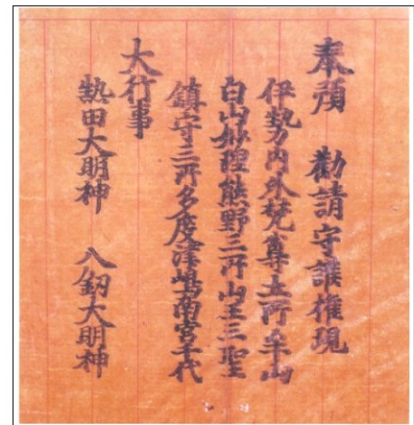 奉預 勧請守護権現
伊勢内外梵尊五所山
白山妙理熊野三所山王三聖
鎮守三所多度津嶋南宮千代
大行事
熱田大明神 八釼大明神